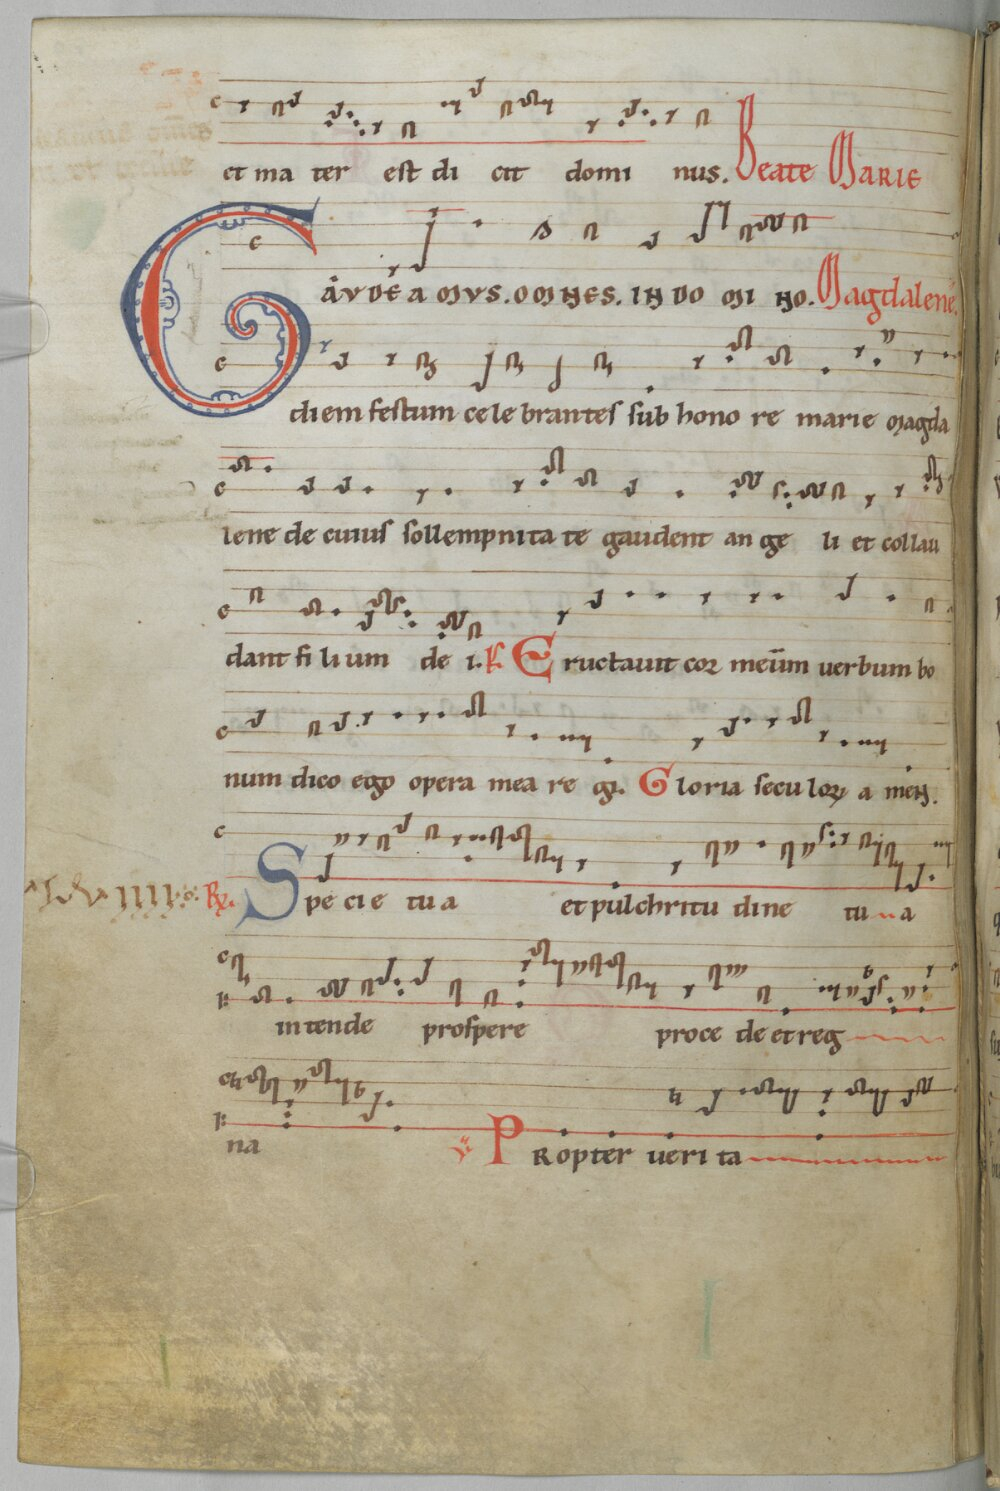 et ma ter est di cit domi nus. Beate MARIE
GAUDEAMUS. OMNES. IN DO MI NO. Magdalene.
diem festum cele brantes sub hono re marie magda
lene de cuius sollempnita te gaudent an ge li et collau
dant fi li um de i. Eructauit cor meum uerbum bo
num dico ego opera mea re gi. Gloria seculor a men.
Spe cie tu a et pulchritu dine tu a
intende prospere proce de et reg
na PRopter ueri ta